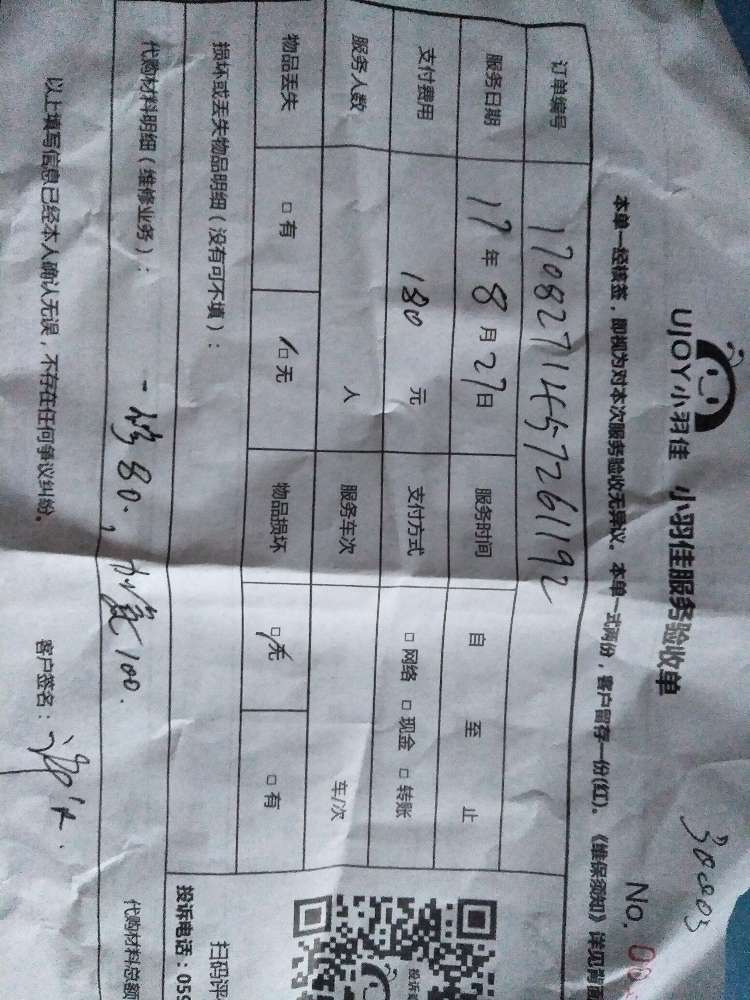 300003
UJOY小羽佳 小羽佳服务验收单
No. 00
本单一经核签，即视为对本次服务验收无异议。本单一式两份，客户留存一份(红)。《维保须知》详见背面
订单编号 1708271457261192
服务日期 17年8月27日 服务时间 自 至 止
支付费用 180 元 支付方式 □ 网络 □ 现金 □ 转账
服务人数 人 服务车次 车/次
物品丢失 □ 有 □ 无 物品损坏 □ 无 □ 有
损坏或丢失物品明细（没有可不填）：
代购材料明细（维修业务）：
一修80.，加氟100.
代购材料总额
以上填写信息已经本人确认无误，不存在任何争议纠纷。
客户签名：
投诉
扫码评
投诉电话：059